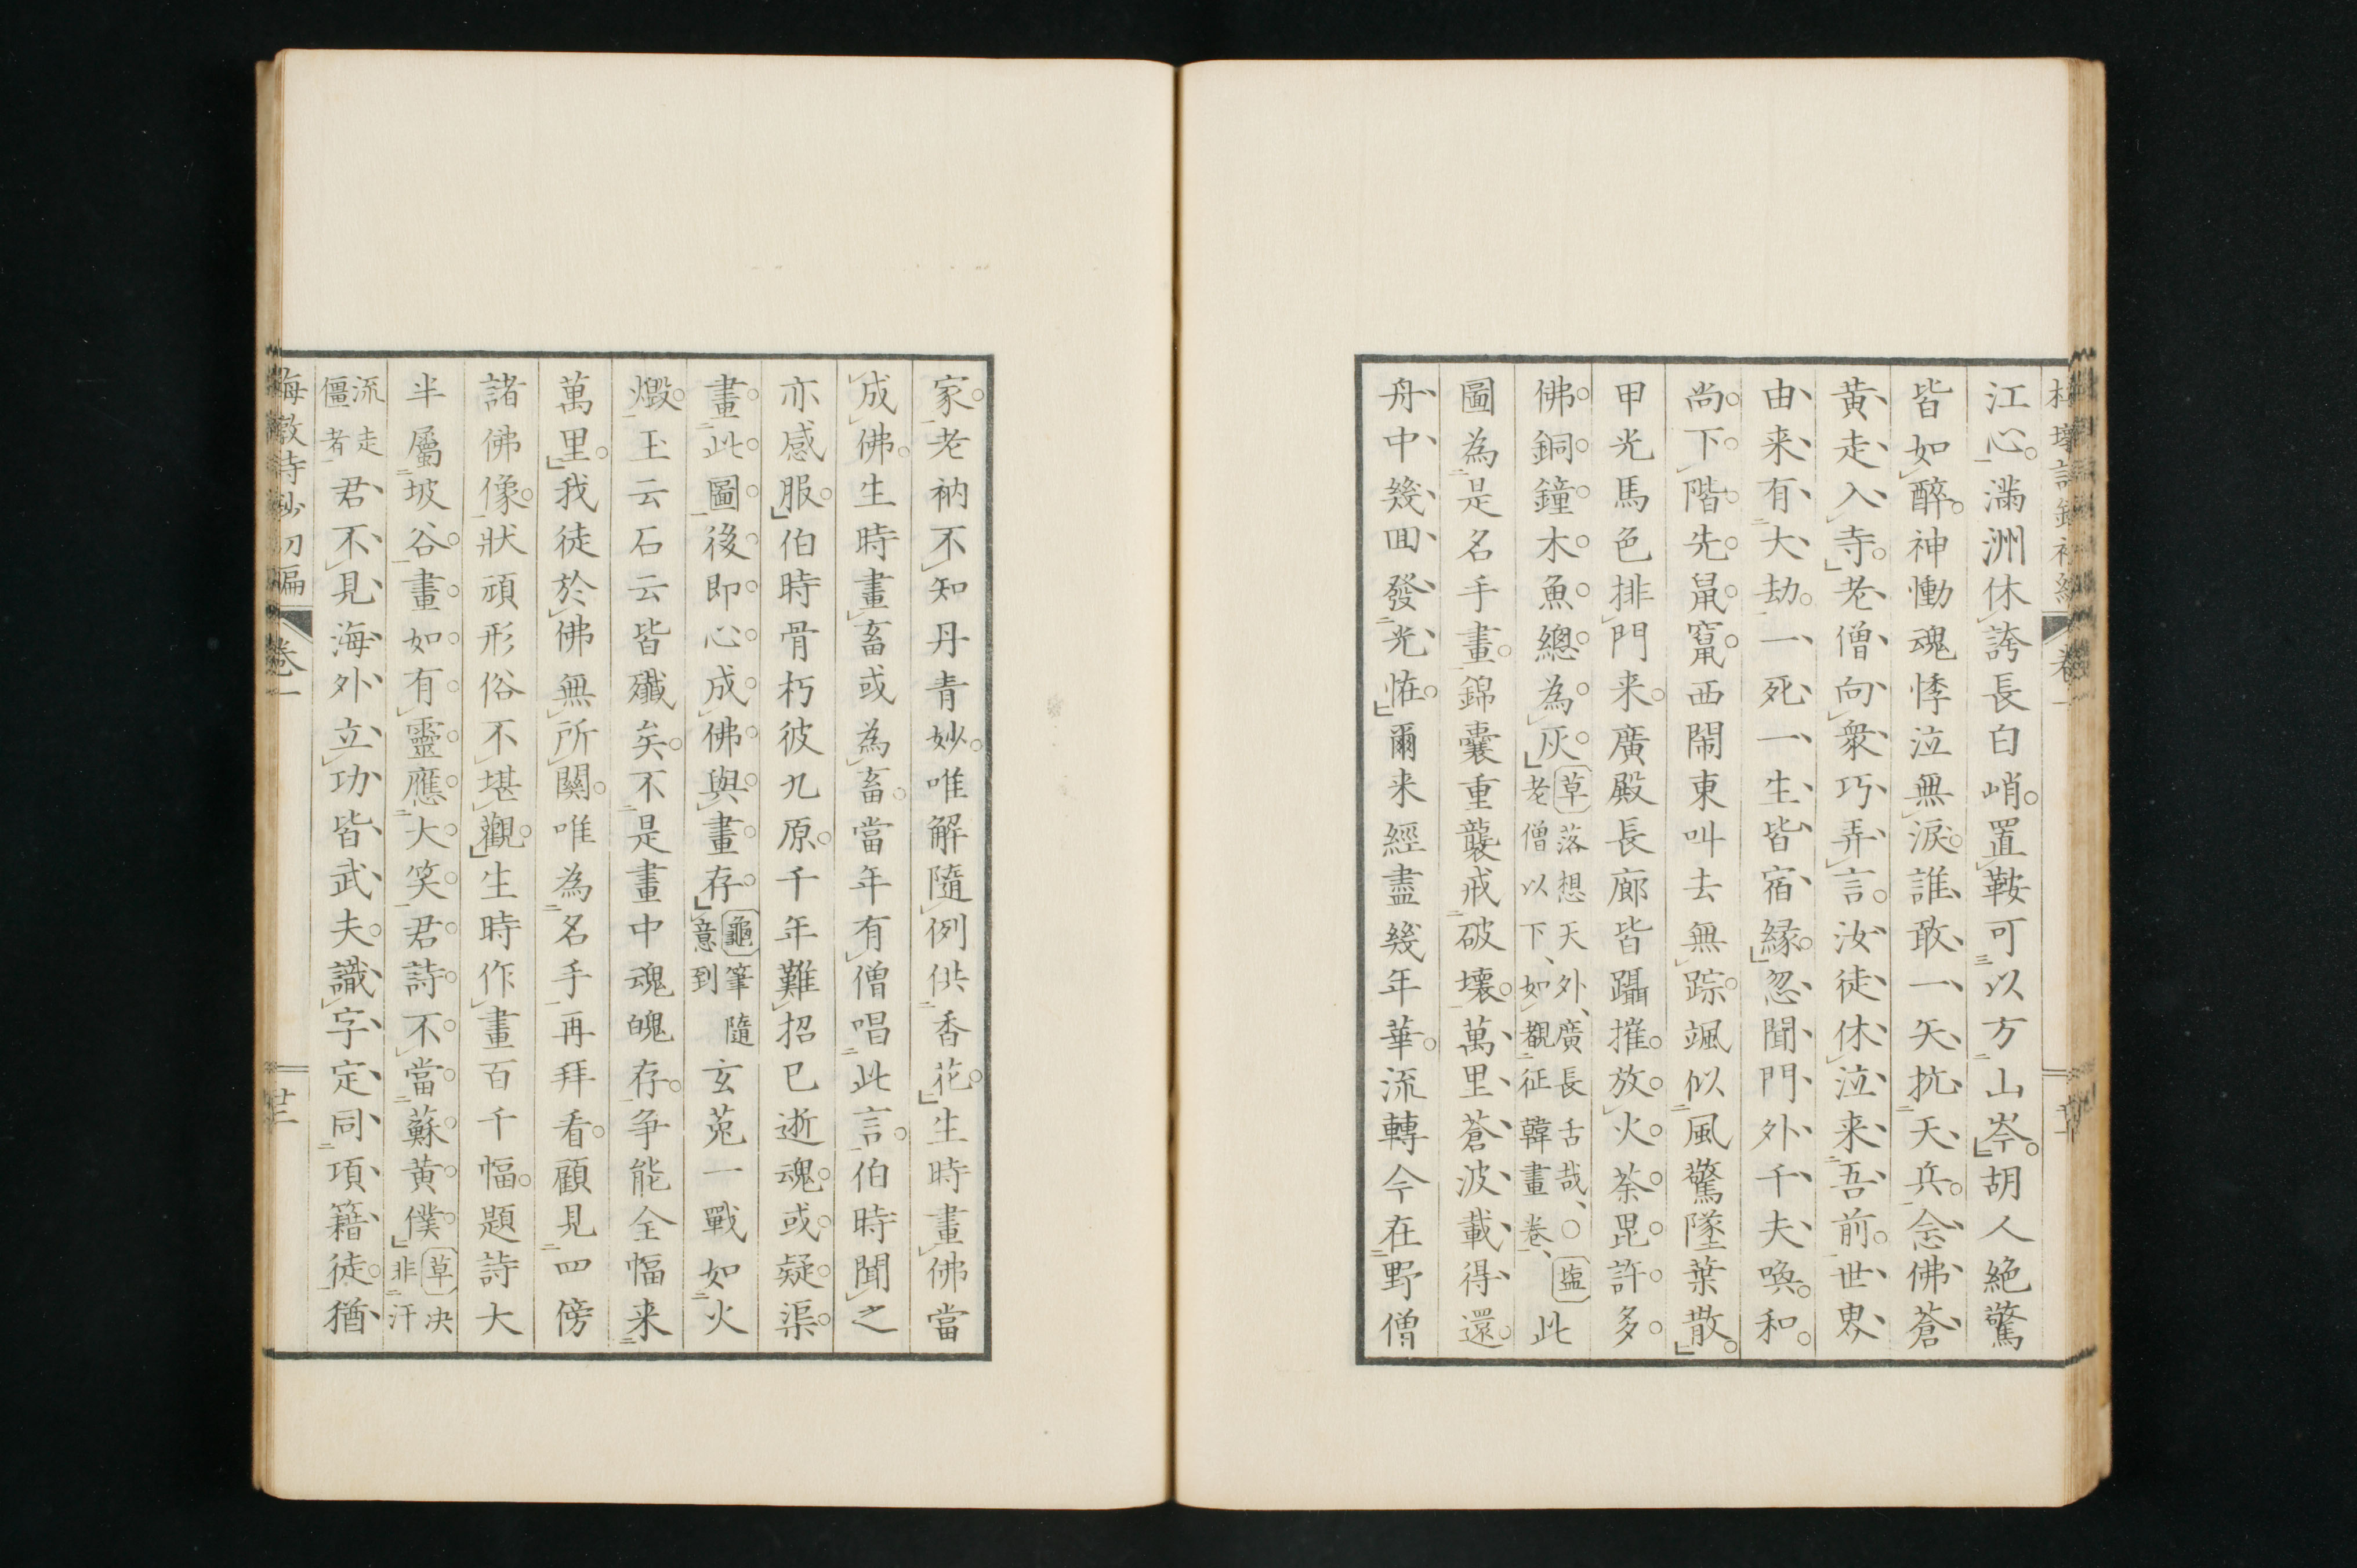 江心。滿洲休誇長白峭。置鞍可以方山岑。胡人絶驚
皆如醉。神慟魂悸泣無淚。誰敢一矢抗天兵。念佛蒼
黃走入寺。老僧向衆巧弄言。汝徒休泣来吾前。世界
由来有大劫。一死一生皆宿縁。忽聞門外千夫喚。和
尚下階先鼠竄。西閙東叫去無踪。颯似風驚墜葉散。
甲光馬色排門来。廣殿長廊皆躡摧。放火荼毘許多
佛。銅鐘木魚總為灰。草落想天外、廣長舌哉、○盬
老僧以下、如觀征韓畫卷、此
圖為是名手畫。錦嚢重襲戒破壞。萬里蒼波載得還。
舟中幾囬發光恠。爾来經盡幾年華。流轉今在野僧
家。老衲不知丹青妙。唯解隨例供香花。生時畫佛當
成佛。生時畫畜或為畜。當年有僧唱此言。伯時聞之
亦感服。伯時骨朽彼九原。千年難招已逝魂。或疑渠。
畫此圖後即心成佛與畫存。龜筆隨
意到 玄菟一戰如火
燬。玉云石云皆殲矣。不是畫中魂魄存。争能全幅来
萬里。我徒於佛無所關。唯為名手再拜看。顧見四傍
諸佛像。狀頑形俗不堪觀。生時作畫百千幅。題詩大
半屬坡谷。畫如有靈應大笑。君詩不當蘇黃僕。草决
非汗
流走
僵者 君不見海外立功皆武夫。識字定同項籍徒。猶
卷一